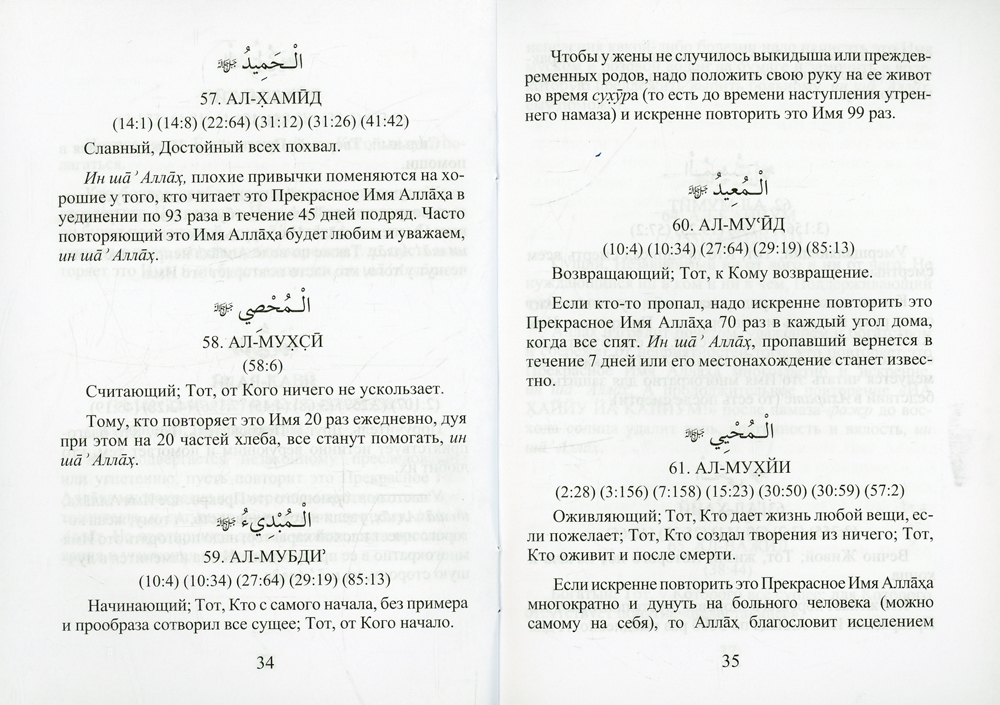 الْحَمِيدُ ﷻ
57. АЛ-Х̣АМӢД
(14:1) (14:8) (22:64) (31:12) (31:26) (41:42)
Славный, Достойный всех похвал.
Ин ша̄ʾ Алла̄х̣, плохие привычки поменяются на хо-
рошие у того, кто читает это Прекрасное Имя Алла̄х̣а в
уединении по 93 раза в течение 45 дней подряд. Часто
повторяющий это Имя Алла̄х̣а будет любим и уважаем,
ин ша̄ʾ Алла̄х̣.
الْمُحْصِي ﷻ
58. АЛ-МУХ̣С̣Ӣ
(58:6)
Считающий; Тот, от Кого ничего не ускользает.
Тому, кто повторяет это Имя 20 раз ежедневно, дуя
при этом на 20 частей хлеба, все станут помогать, ин
ша̄ʾ Алла̄х̣.
الْمُبْدِيءُ ﷻ
59. АЛ-МУБДИʾ
(10:4) (10:34) (27:64) (29:19) (85:13)
Начинающий; Тот, Кто с самого начала, без примера
и прообраза сотворил все сущее; Тот, от Кого начало.
34
Чтобы у жены не случилось выкидыша или преждев-
ременных родов, надо положить свою руку на ее живот
во время сух̣ӯра (то есть до времени наступления утрен-
него намаза) и искренне повторить это Имя 99 раз.
الْمُعِيدُ ﷻ
60. АЛ-МУʿӢД
(10:4) (10:34) (27:64) (29:19) (85:13)
Возвращающий; Тот, к Кому возвращение.
Если кто-то пропал, надо искренне повторить это
Прекрасное Имя Алла̄х̣а 70 раз в каждый угол дома,
когда все спят. Ин ша̄ʾ Алла̄х̣, пропавший вернется в
течение 7 дней или его местонахождение станет извес-
тно.
الْمُحْيِي ﷻ
61. АЛ-МУХ̣ЙИ
(2:28) (3:156) (7:158) (15:23) (30:50) (30:59) (57:2)
Оживляющий; Тот, Кто дает жизнь любой вещи, ес-
ли пожелает; Тот, Кто создал творения из ничего; Тот,
Кто оживит и после смерти.
Если искренне повторить это Прекрасное Имя Алла̄х̣а
многократно и дунуть на больного человека (можно
самому на себя), то Алла̄х̣ благословит исцелением
35